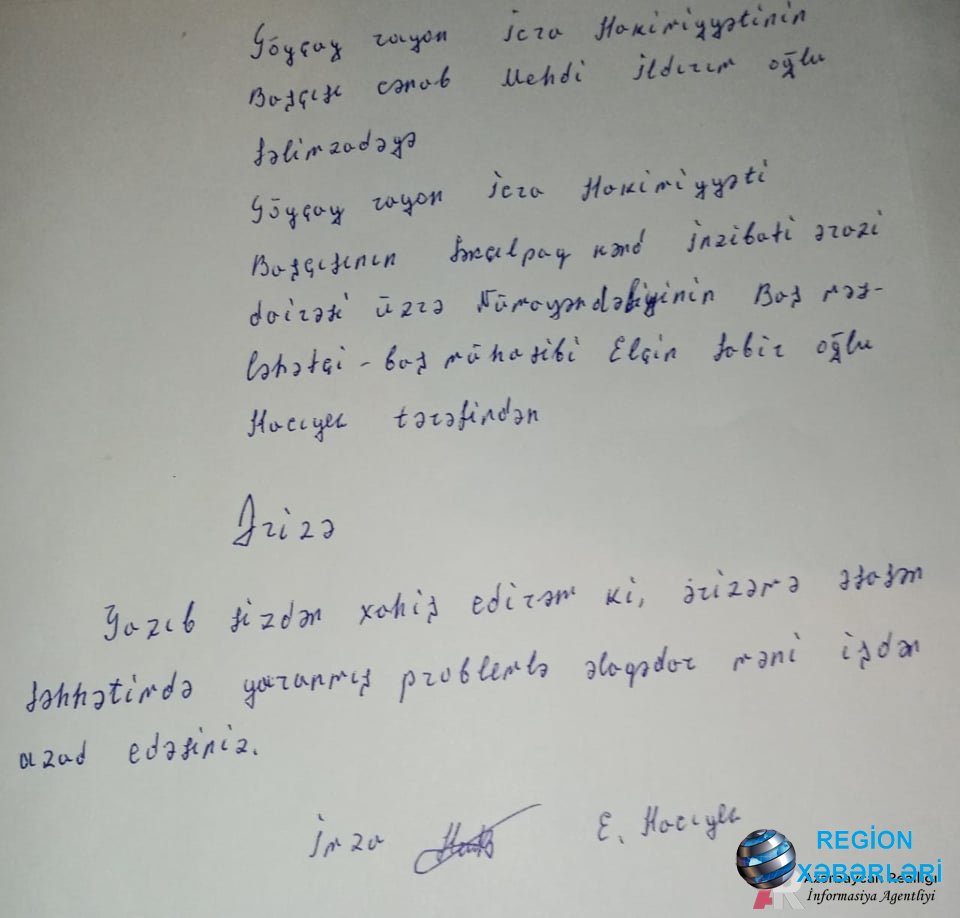 Göyçay rayon İcra Hakimiyyətinin
Başçısı cənab Mehdi İldırım oğlu
Səlimzadəyə
Göyçay rayon İcra Hakimiyyəti
Başçısının İncılpaq kənd inzibati ərazi
dairəsi üzrə Nümayəndəliyinin Baş məs-
ləhətçi - baş mühasibi Elçin Sabir oğlu
Hacıyev tərəfindən
Ərizə
Yazıb sizdən xahiş edirəm ki, ərizəmə əsasən
səhhətimdə yaranmış problemlə əlaqədar məni işdən
azad edəsiniz.
İmza E. Hacıyev
REGİON
XƏBƏRLƏRİ
Azərbaycan Reallığı
İnformasiya Agentliyi